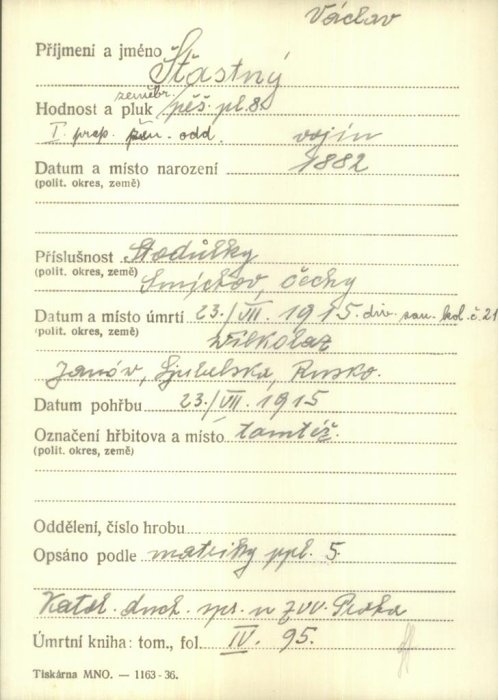 Václav
Příjmení a jméno Šťastný
zeměbr.
Hodnost a pluk pěš. pl. 8.
I. prap. odd. vojín
Datum a místo narození 1882
(polit. okres, země)
Příslušnost Stodůlky
(polit. okres, země) Smíchov, Čechy
Datum a místo úmrtí 23./VII. 1915. div. san. kol. č. 21
(polit. okres, země) Wilkolaz
Janów, Ljubelska, Rusko.
Datum pohřbu 23./VII. 1915
Označení hřbitova a místo tamtéž.
(polit. okres, země)
Oddělení, číslo hrobu
Opsáno podle matriky ppl. 5.
Katol. duch. spr. u ZVV. Praha
Úmrtní kniha: tom., fol. IV. 95.
Tiskárna MNO. — 1163-36.